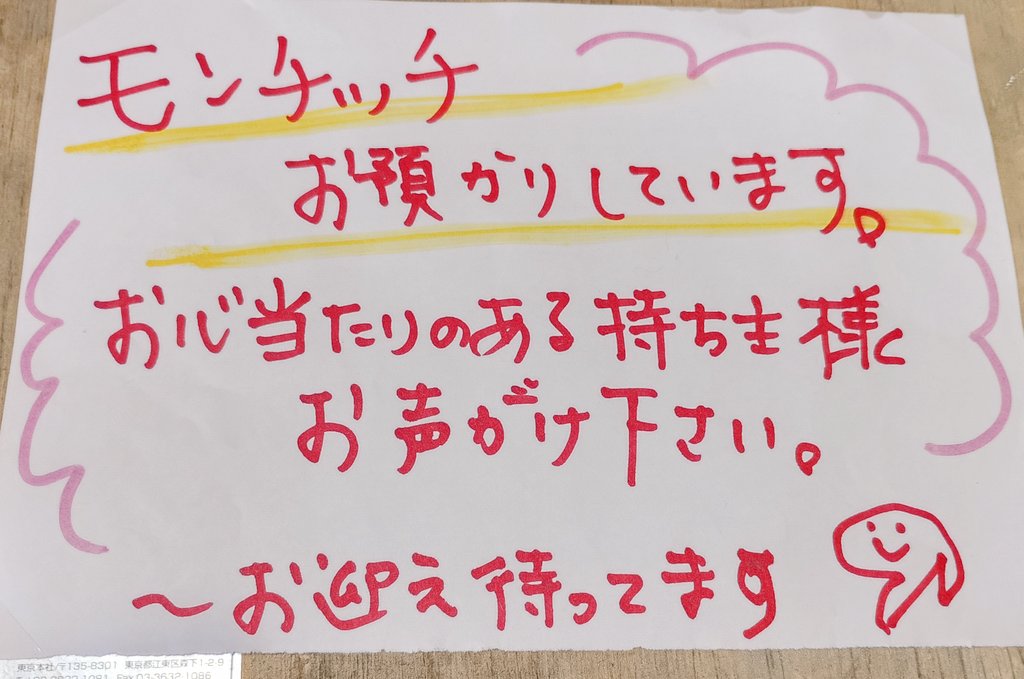 モンチッチ
お預かりしています。
お心当たりのある持ち主様
お声がけ下さい。
～お迎え待ってます
東京本社/〒135-8301 東京都江東区森下1-2-9
Fax.03-3632-1086